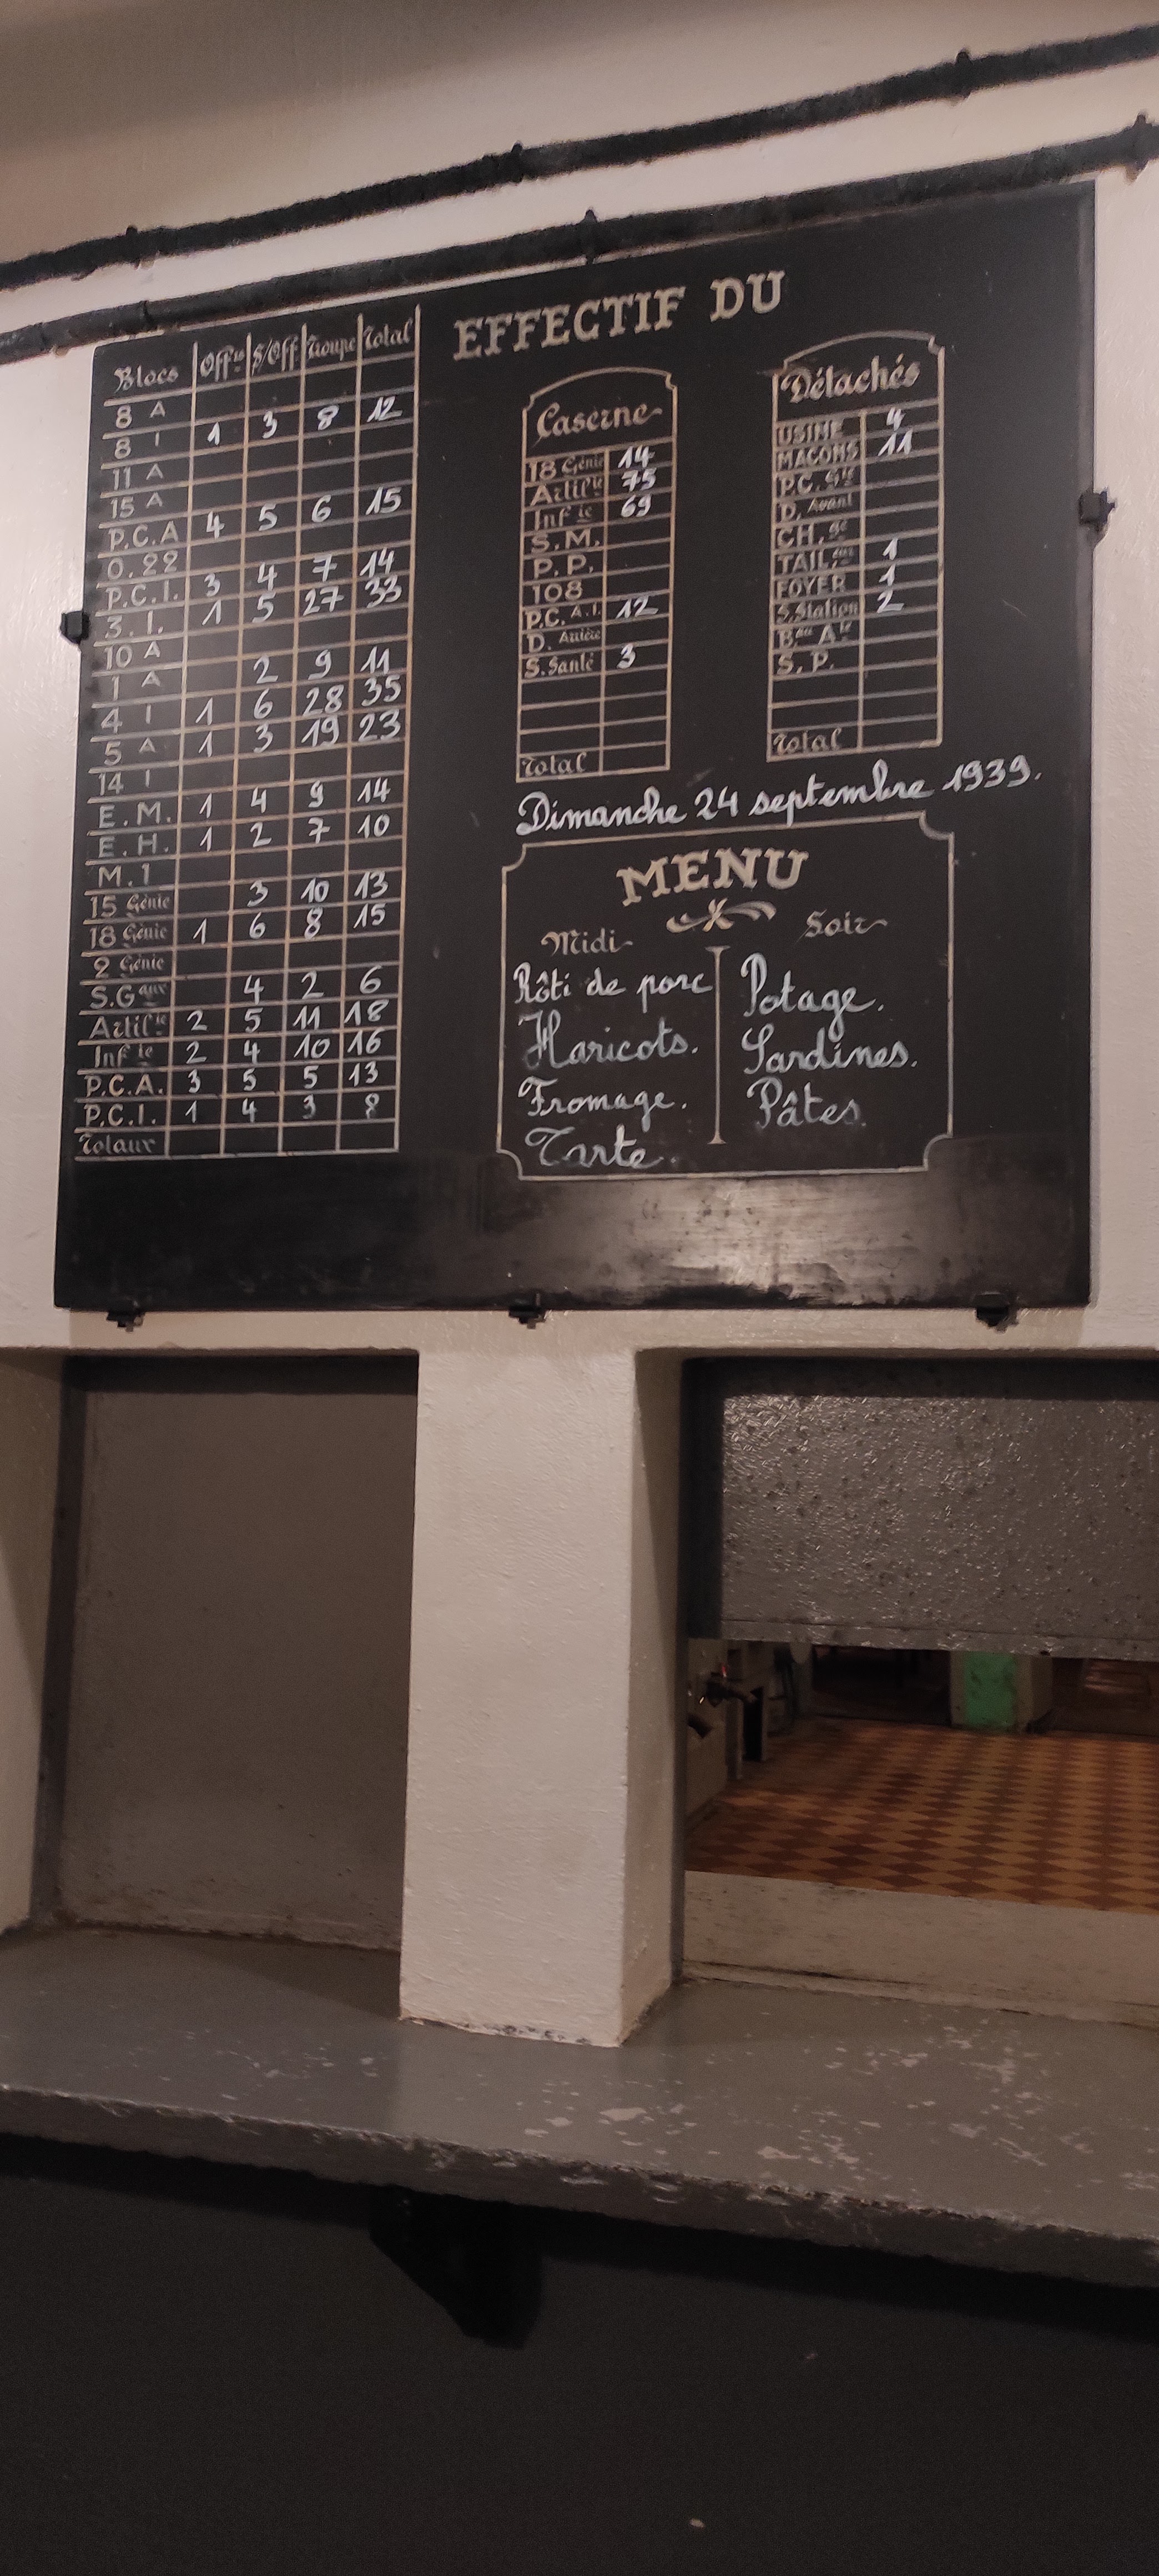 EFFECTIF DU
Blocs Off.rs S/Off. Troupe Total
8 A
8 I 1 3 8 12
11 A
15 A
P.C.A 4 5 6 15
O.22
P.C.I. 3 4 7 14
3.I. 1 5 27 33
10 A
1 A 2 9 11
4 I 1 6 28 35
5 A 1 3 19 23
14 I
E.M. 1 4 9 14
E.H. 1 2 7 10
M.1
15 Génie 3 10 13
18 Génie 1 6 8 15
2 Génie
S.Gaux 4 2 6
Artil.ie 2 5 11 18
Inf.ie 2 4 10 16
P.C.A. 3 5 5 13
P.C.I. 1 4 3 8
Totaux
Caserne
18 Génie 14
Artil.ie 75
Inf.ie 69
S.M.
P.P.
108
P.C. A.I. 12
D. Arrière
S.Santé 3
Total
Détachés
USINE 4
MAÇONS 11
P.C.
D. Avant
CH.gé
TAIL.eur 1
FOYER 1
S.Station 2
S.P.
Total
Dimanche 24 septembre 1939.
MENU
Midi
Rôti de porc
Haricots.
Fromage.
Tarte.
Soir
Potage.
Sardines.
Pâtes.